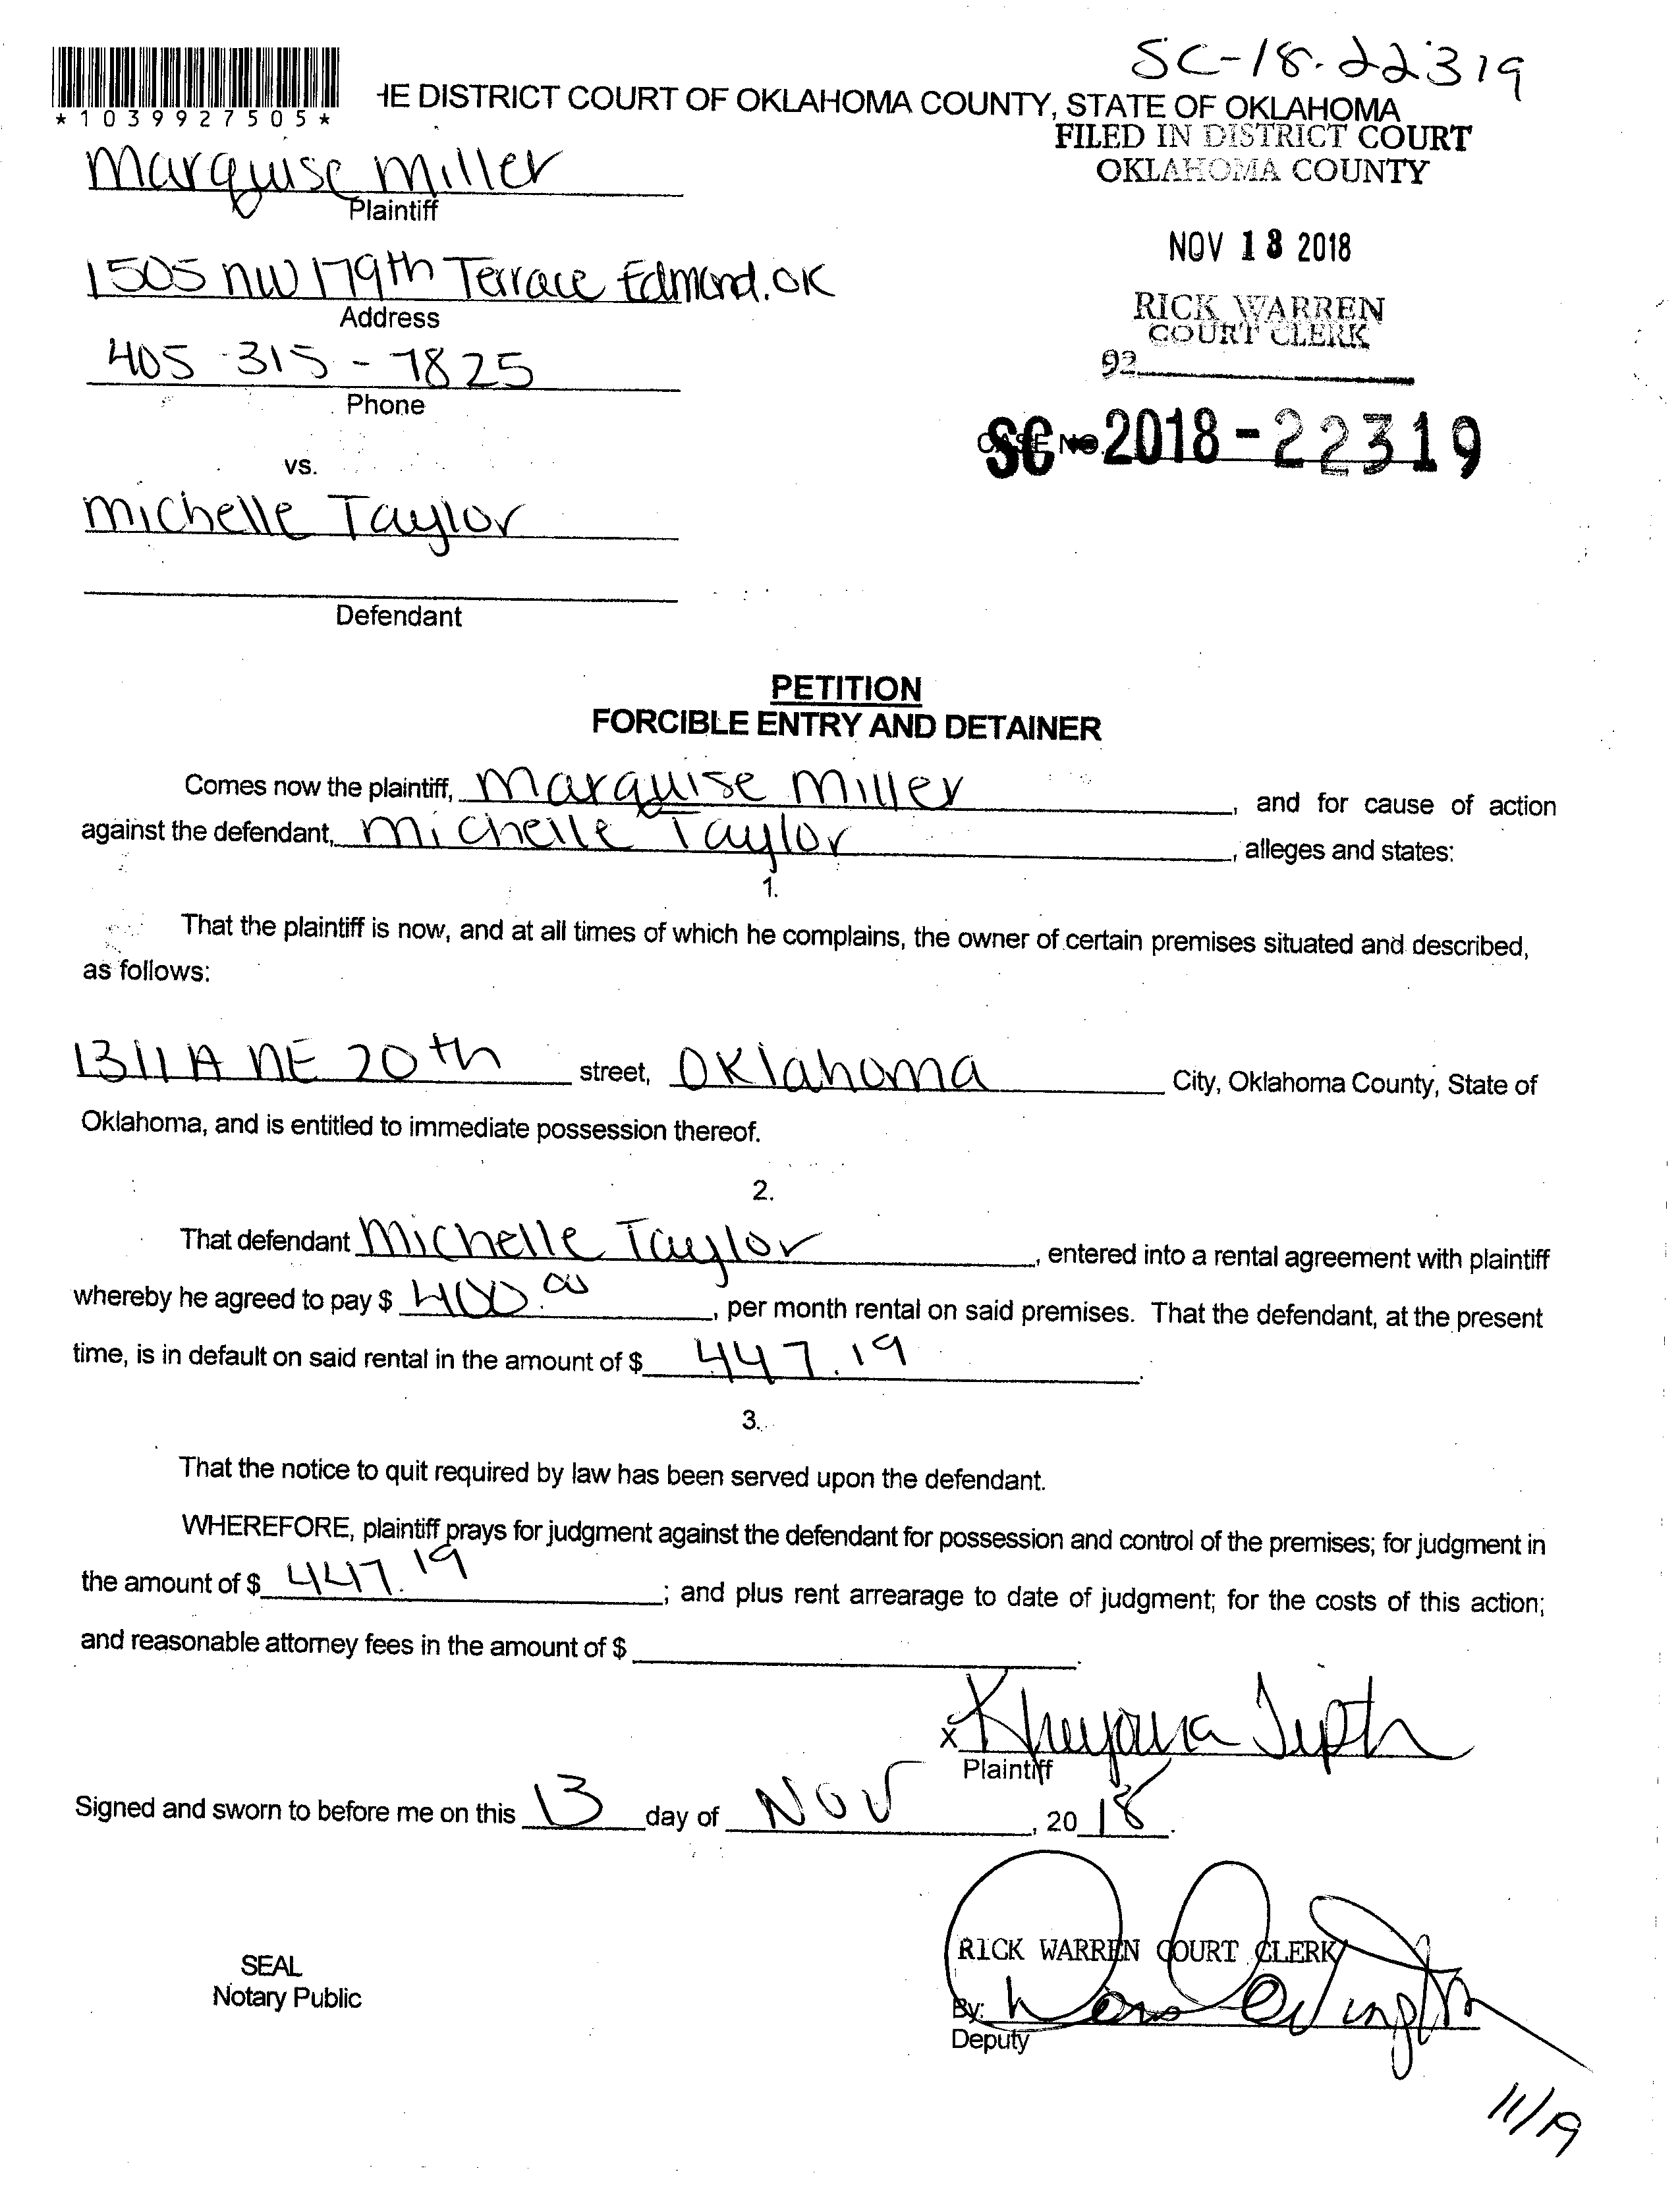 SC-18-22319
*1039927505*
HE DISTRICT COURT OF OKLAHOMA COUNTY, STATE OF OKLAHOMA
FILED IN DISTRICT COURT
OKLAHOMA COUNTY
Marquise Miller
Plaintiff
NOV 13 2018
1505 NW 179th Terrace Edmond. OK
Address
RICK WARREN
COURT CLERK
405-315-7825
92
Phone
CASE NO.
SC-2018-22319
vs.
Michelle Taylor
Defendant
PETITION
FORCIBLE ENTRY AND DETAINER
Comes now the plaintiff, Marquise Miller, and for cause of action
against the defendant, Michelle Taylor, alleges and states:
1.
That the plaintiff is now, and at all times of which he complains, the owner of certain premises situated and described,
as follows:
1311A NE 20th street, Oklahoma City, Oklahoma County, State of
Oklahoma, and is entitled to immediate possession thereof.
2.
That defendant Michelle Taylor, entered into a rental agreement with plaintiff
whereby he agreed to pay $ 400.00, per month rental on said premises. That the defendant, at the present
time, is in default on said rental in the amount of $ 447.19.
3.
That the notice to quit required by law has been served upon the defendant.
WHEREFORE, plaintiff prays for judgment against the defendant for possession and control of the premises; for judgment in
the amount of $ 447.19; and plus rent arrearage to date of judgment; for the costs of this action;
and reasonable attorney fees in the amount of $ .
X
Plaintiff
Signed and sworn to before me on this 13 day of Nov, 2018.
RICK WARREN COURT CLERK
SEAL
Notary Public
By:
Deputy
11/19